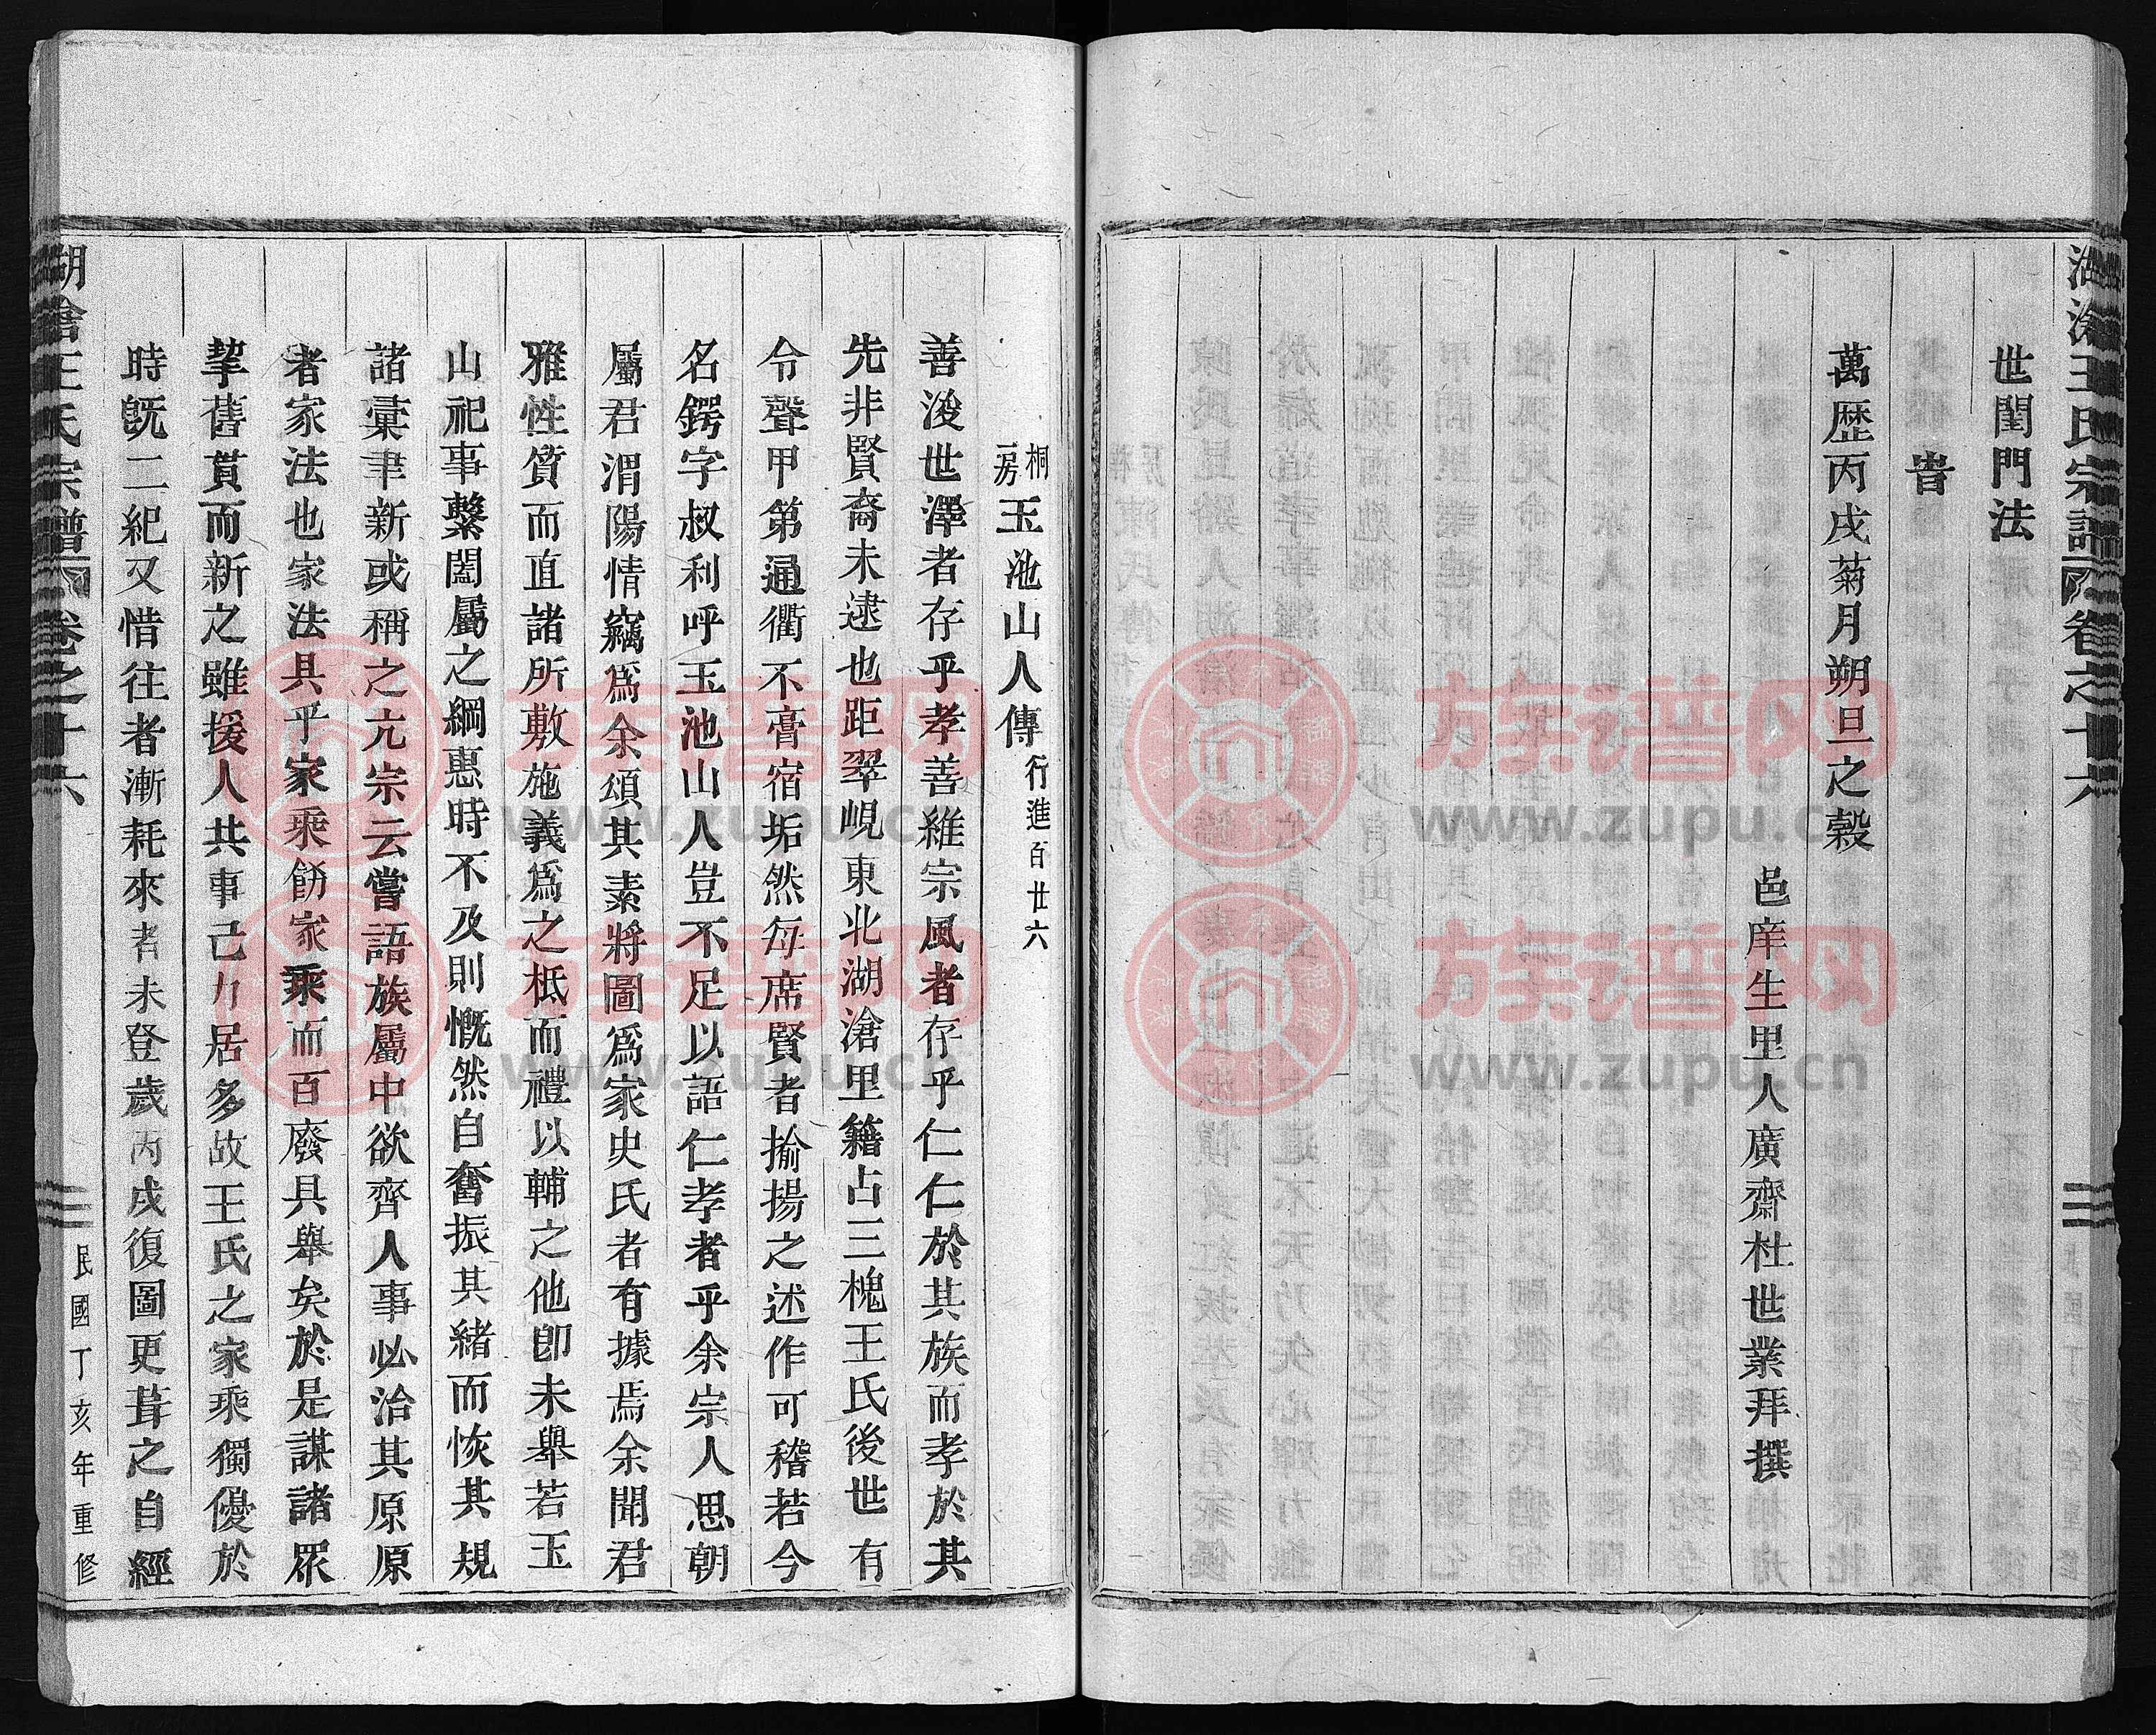 湖滄王氏宗譜 卷之十六
世閨門法
旹
萬歷丙戌菊月朔旦之穀
邑庠生里人廣齋杜世業拜撰
桐一房 玉池山人傳 行進百廿六
善浚世澤者存乎孝善維宗風者存乎仁仁於其族而孝於其
先非賢裔未逮也距翠峴東北湖滄里籍占三槐王氏後世有
令聲甲第通衢不膏宿垢然每席賢者揄揚之述作可稽若今
名鍔字叔利呼玉池山人豈不足以語仁孝者乎余宗人思朝
屬君渭陽情竊爲余頌其素將圖爲家史氏者有據焉余聞君
雅性質而直諸所敷施義爲之柢而禮以輔之他卽未舉若玉
山祀事繫闔屬之綱惠時不及則慨然自奮振其緒而恢其規
諸彙聿新或稱之亢宗云嘗語族屬中欲齊人事必治其原原
者家法也家法具乎家乘飭家乘而百廢具舉矣於是謀諸眾
挈舊貫而新之雖援人共事己力居多故王氏之家乘獨優於
時旣二紀又惜往者漸耗來者未登歲丙戌復圖更葺之自經
湖滄王氏宗譜 卷之十六
民國丁亥年重修
族谱网 www.zupu.cn
族谱网 www.zupu.cn
族谱网 www.zupu.cn
族谱网 www.zupu.cn